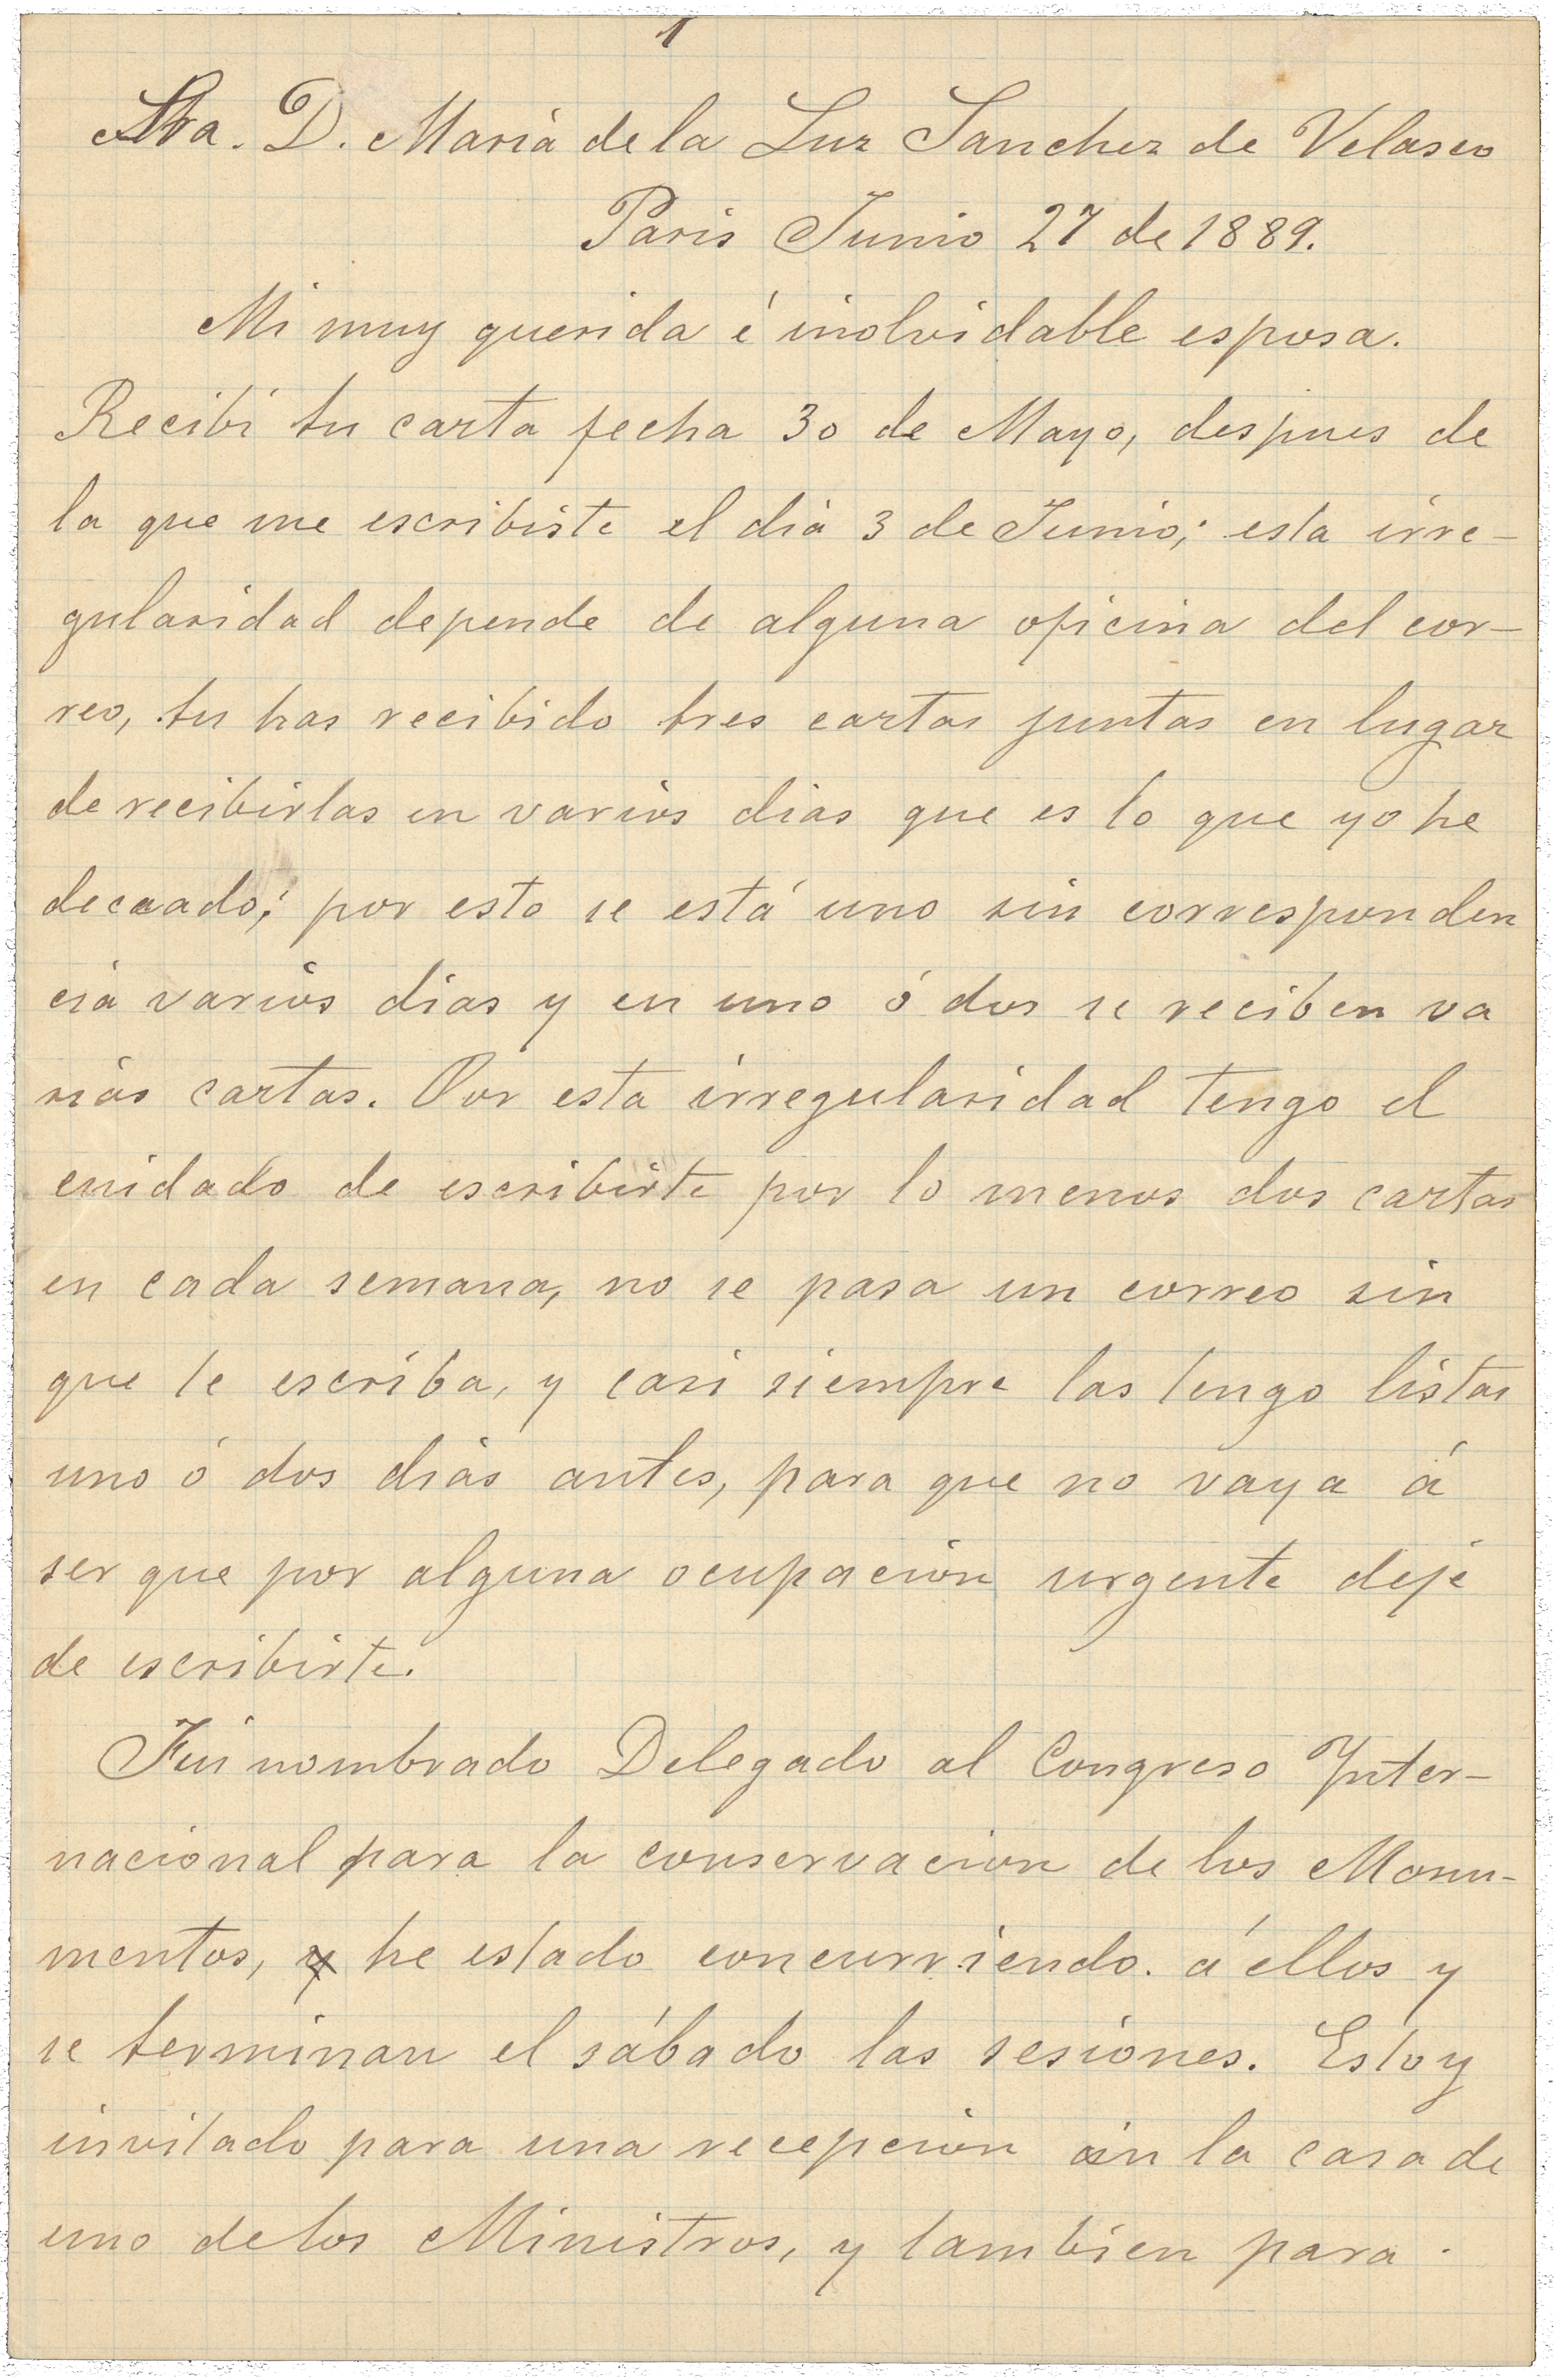 1
Sra. D. Maria de la Luz Sanchez de Velasco
Paris Junio 27 de 1889.
Mi muy querida é inolvidable esposa.
Recibí tu carta fecha 30 de Mayo, despues de
la que me escribiste el dia 3 de Junio; esta irre-
gularidad depende de alguna oficina del cor-
reo, tu has recibido tres cartas juntas en lugar
de recibirlas en varios dias que es lo que yo he
deseado; por esto se está uno sin corresponden
cia varios dias y en uno ó dos se reciben va
rias cartas. Por esta irregularidad tengo el
cuidado de escribirte por lo menos dos cartas
en cada semana, no se pasa un correo sin
que te escriba, y casi siempre las tengo listas
uno ó dos dias antes, para que no vaya á
ser que por alguna ocupacion urgente deje
de escribirte.
Fui nombrado Delegado al Congreso Inter-
nacional para la conservacion de los Monu-
mentos, y he estado concurriendo. á ellos y
se terminan el sábado las sesiones. Estoy
invitado para una recepcion en la casa de
uno de los Ministros, y tambien para